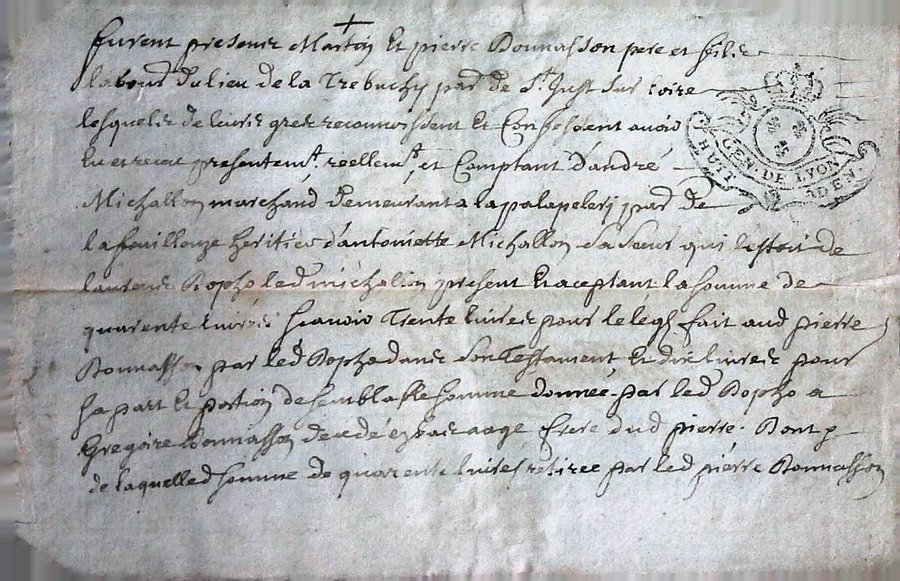 furent presens Martin Et pierre Bonnasson pere et fils
labours du lieu de la Trebuchy par de St Just sur loire
lesquels de leurs gres reconnoissent Et Confessent avoir
Eu et receu presentemt. reellemt. et Comptant D'andré
Michallon marchand demeurant a la palapelery par de
la fouillouze heritier d'antoinette Michallon sa seur qui l'estoit de
laurens Ropho led michallon present Et aceptant la somme de
quarente livres scavoir Trente livres pour le légs fait aud pierre
Bonnasson par led Rophe dans son Testament Et dix livres pour
sa part Et portion de semblable somme donnée par led Ropho a
Gregoire Bonnasson decedé en bas aage frere dud pierre. Dont p
de laquelled somme de quarente livres retiree par led pierre Bonnasson
GEN. DE LYON
HUIT DEN.